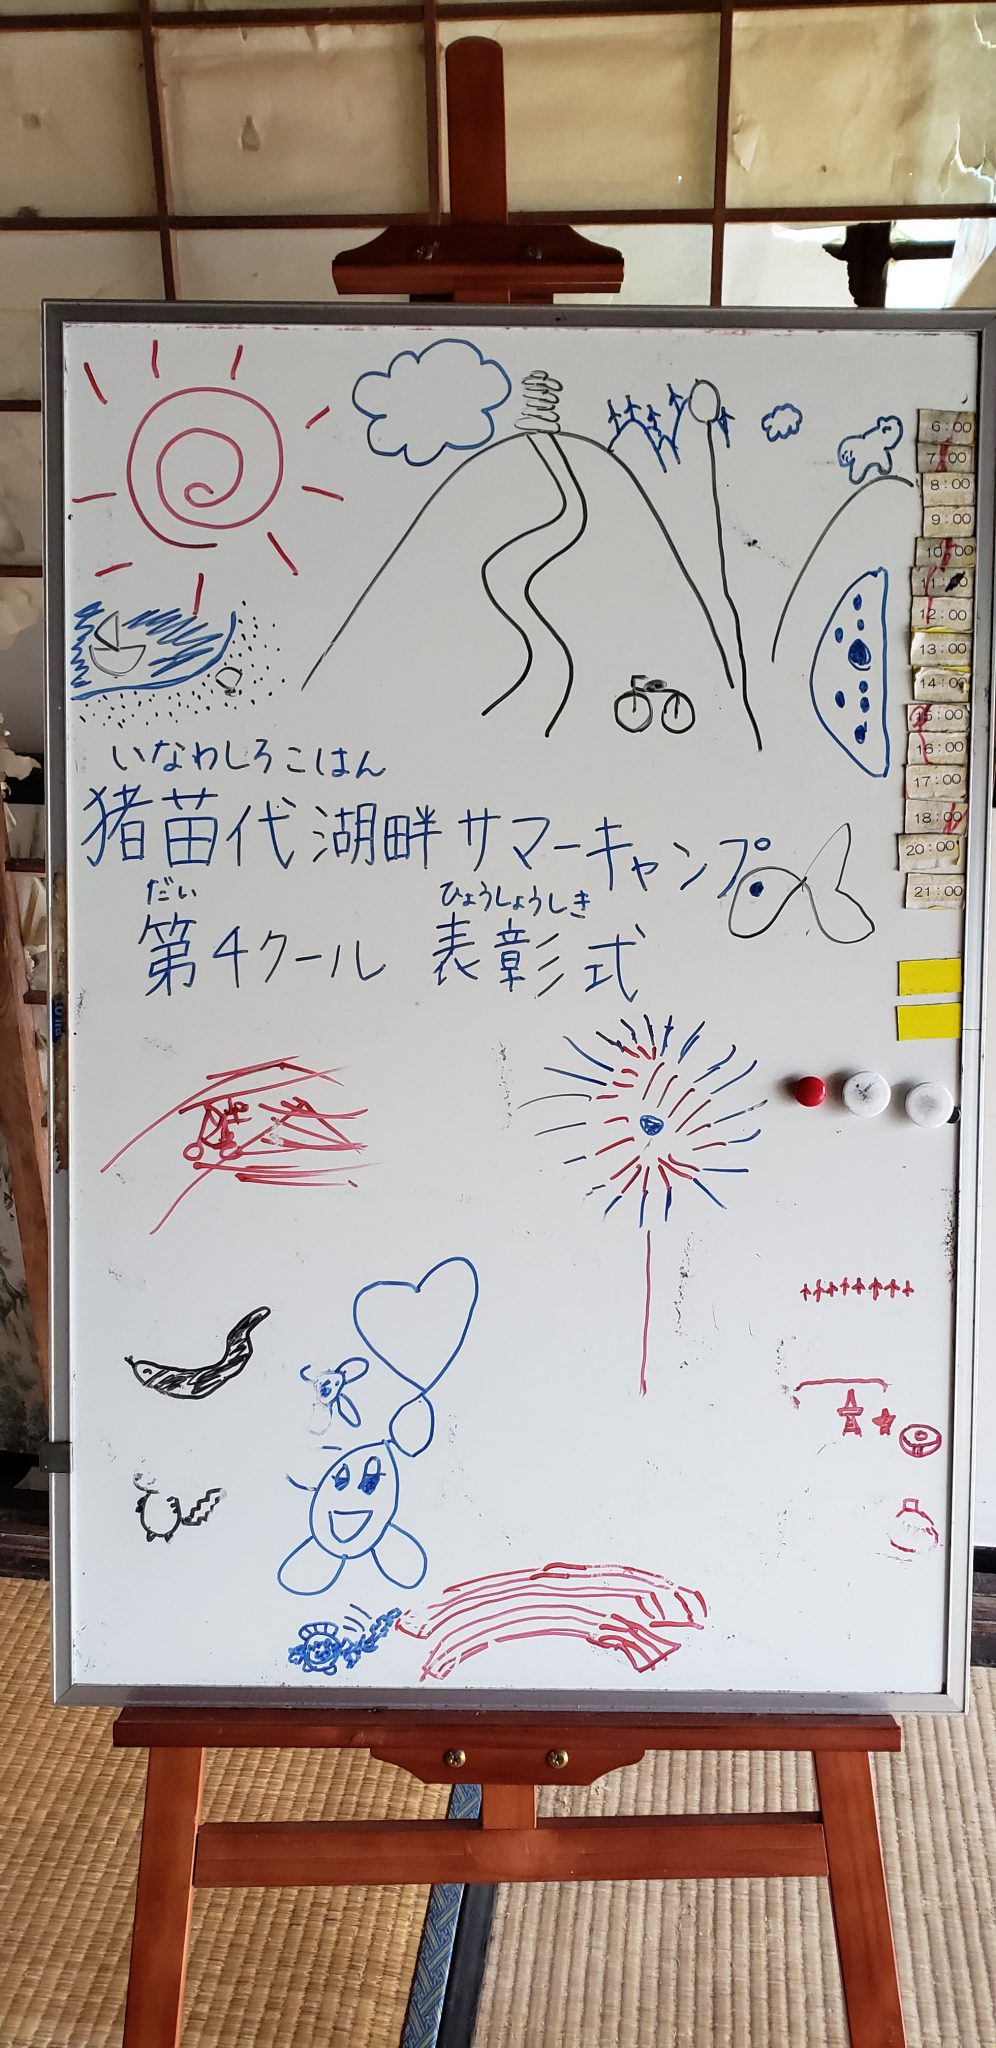 6:00
7:00
8:00
9:00
10:00
11:00
12:00
13:00
14:00
15:00
16:00
17:00
18:00
20:00
21:00
いなわしろこはん
猪苗代湖畔サマーキャンプ
だい ひょうしょうしき
第4クール 表彰式